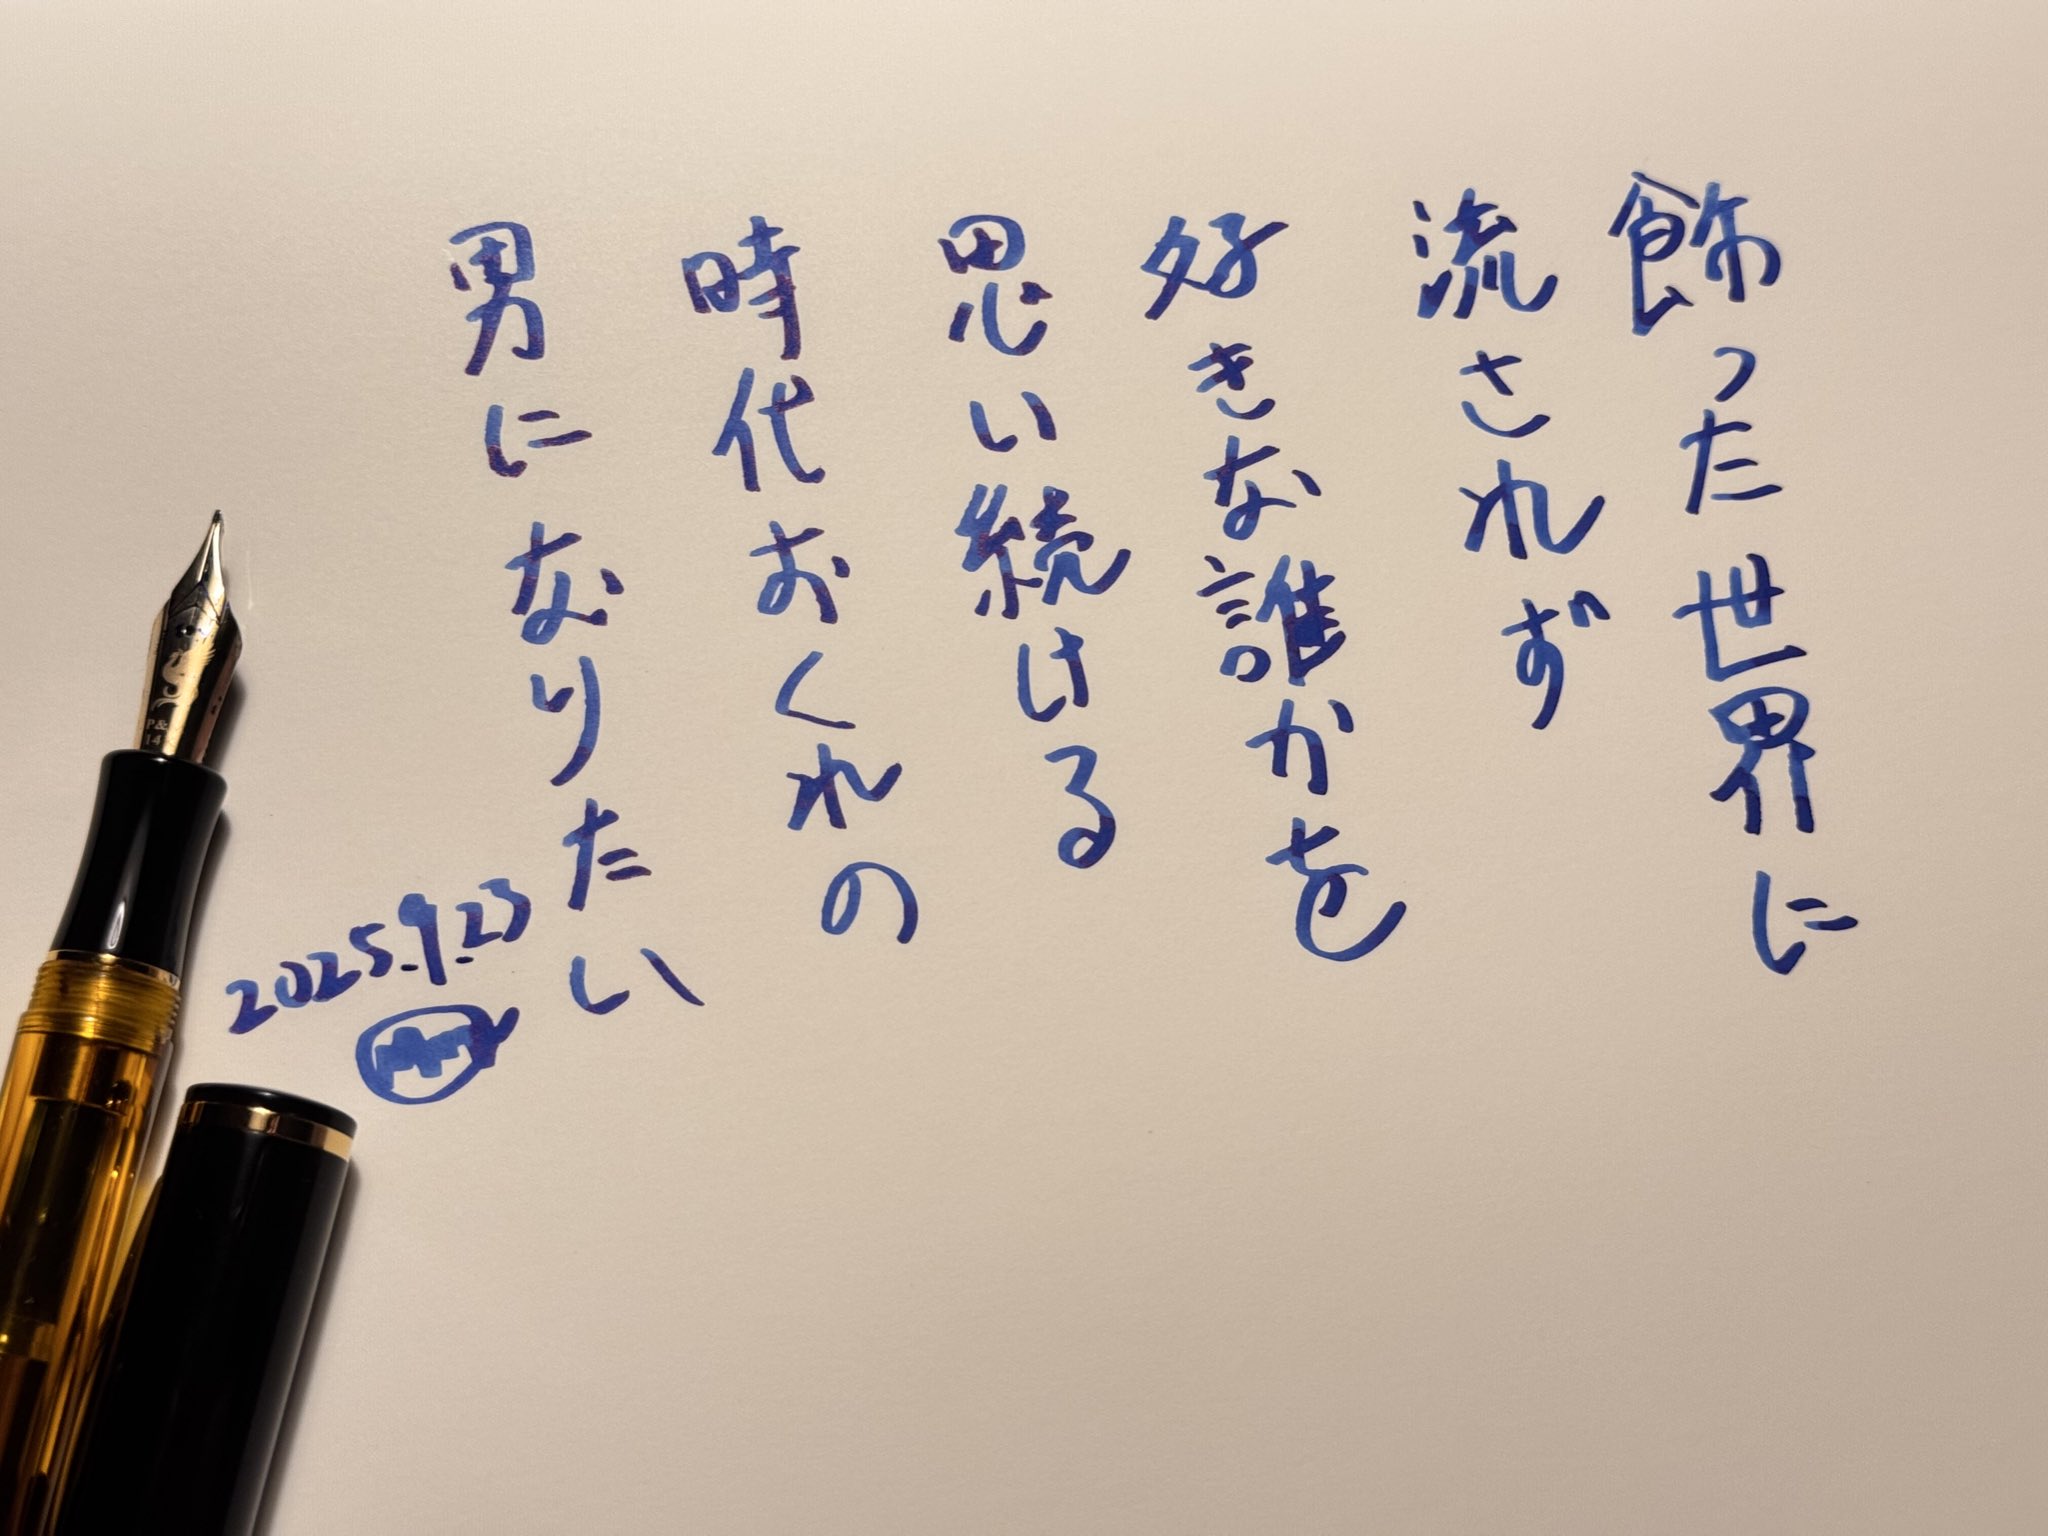 飾った世界に
流されず
好きな誰かを
思い続ける
時代おくれの
男になりたい
2025.9.23
P&
14